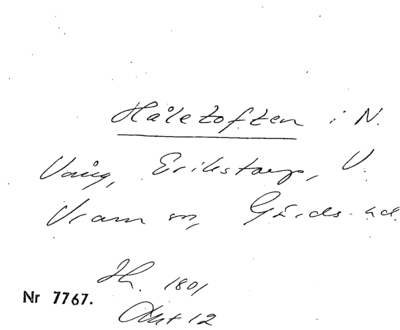 Håletoften i N.
Vång, Erikstorp, V.
Vram sn, Gärds hd.
Nr 7767.
1801
Akt 12